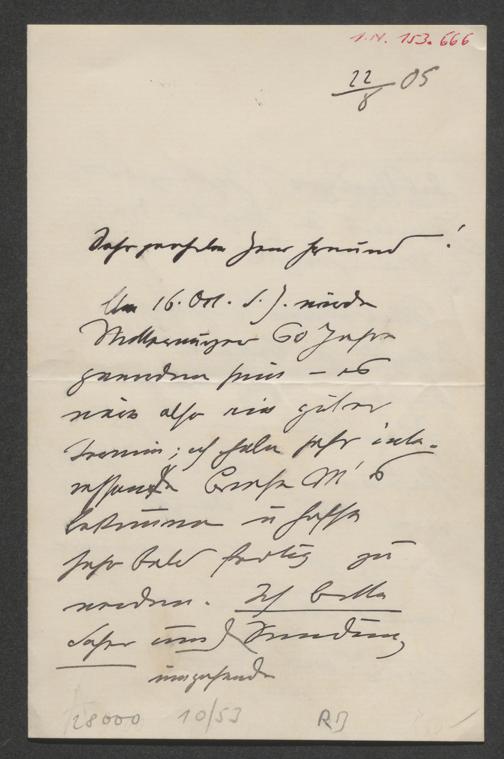 I.N. 153.666
22/8 05
Sehr geehrter Herr Freund!
Am 16. Okt. d. J. würde
Mitterwurzer 60 Jahre
geworden sein – es
wäre also ein guter
Termin; ich habe sehr inte-
ressante Briefe M's
bekommen u hoffe
sehr bald fertig zu
werden. Ich bitte
daher um Sendung
umgehende
28000 10/53 RB